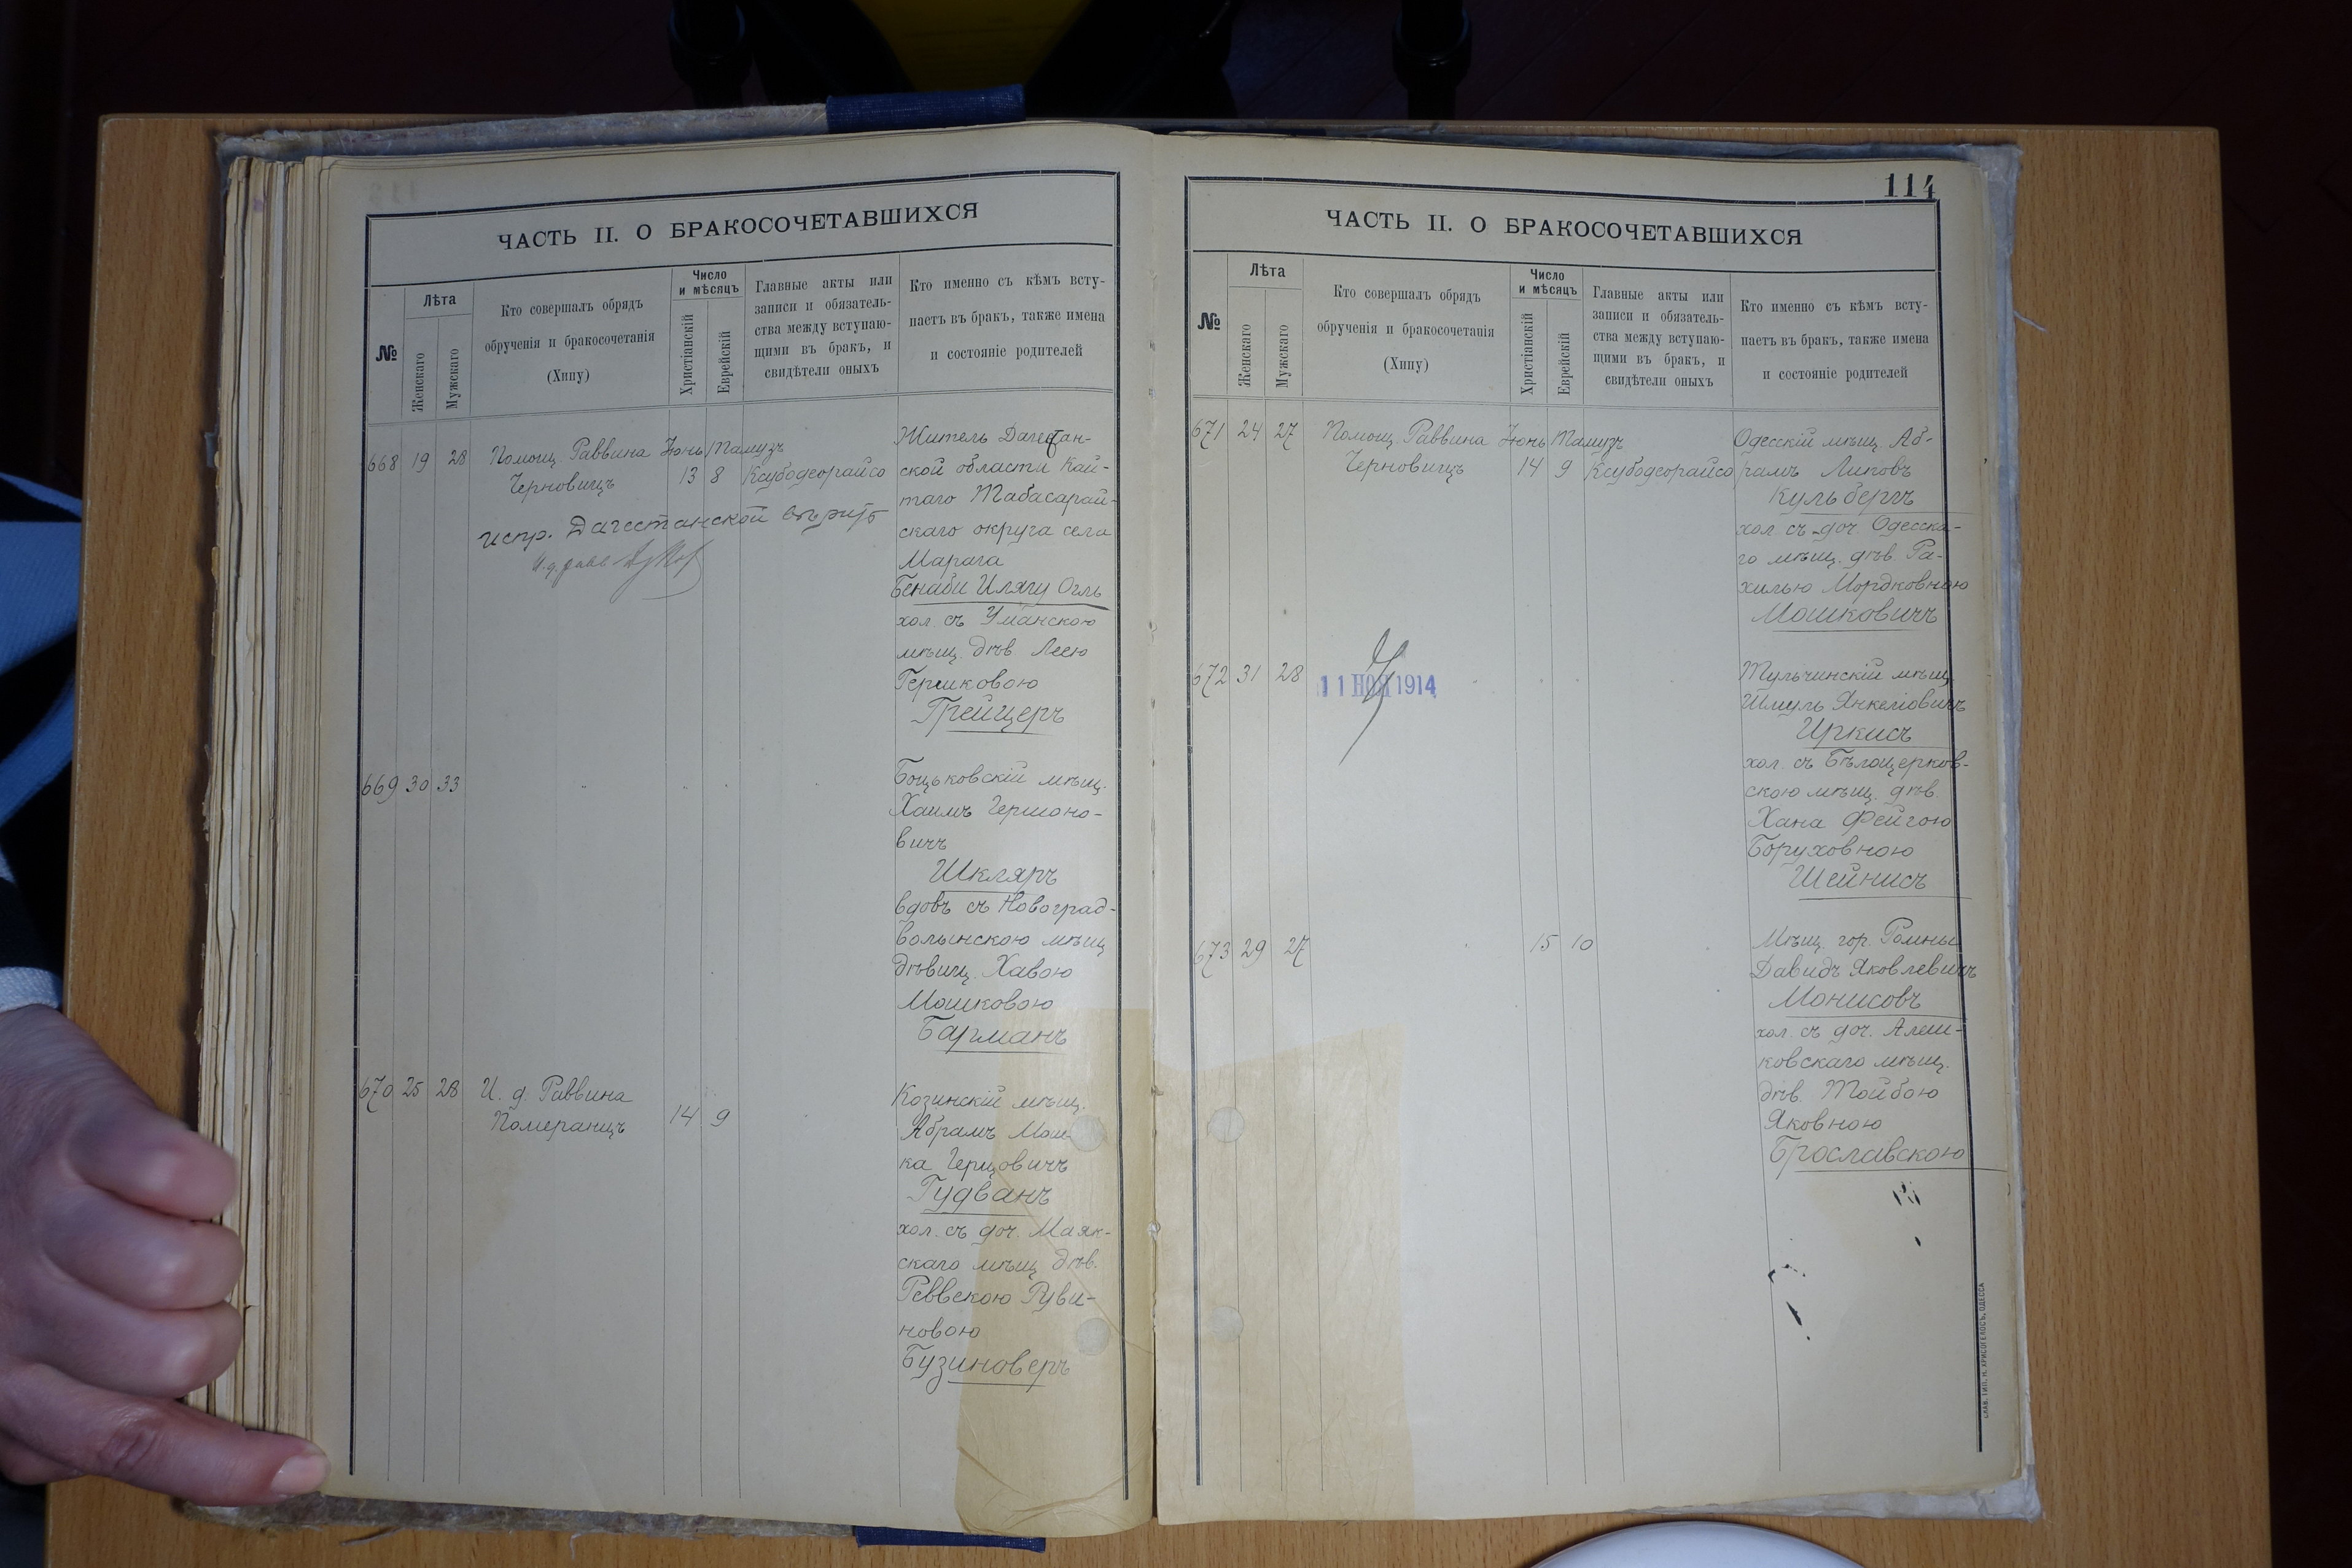 ЧАСТЬ II. О БРАКОСОЧЕТАВШИХСЯ
№
Лѣта
Женскаго
Мужскаго
Кто совершалъ обрядъ
обрученія и бракосочетанія
(Хипу)
Число
и мѣсяцъ
Христіанскій
Еврейскій
Главные акты или
записи и обязатель-
ства между вступаю-
щими въ бракъ, и
свидѣтели оныхъ
Кто именно съ кѣмъ всту-
паетъ въ бракъ, также имена
и состояніе родителей
668 19 28 Помощ. Раввина Іюнь Тамузъ
Черновицъ 13 8 Ксубодеорайсо
испр. Дагестанской вѣрить
И. д. равв.
Житель Дагестан-
ской области Кай-
таго Табасарай-
скаго округа села
Марага
Бенаби Илягу Оглъ
хол. съ Уманскою
мѣщ. дѣв. Леею
Гершковою
Грейцеръ
669 30 33
Боцьковскій мѣщ.
Хаимъ Гершоно-
вичъ
Шкляръ
вдовъ съ Новоград-
волынскою мѣщ
дѣвиц. Хавою
Мошковою
Барманъ
670 25 28 И. д. Раввина
Померанцъ 14 9
Козинскій мѣщ.
Абрамъ Мош-
ка Герцовичъ
Гудванъ
хол. съ доч. Маяк-
скаго мѣщ дѣв.
Реввекою Руви-
новою
Бузиноверъ
114
ЧАСТЬ II. О БРАКОСОЧЕТАВШИХСЯ
№
Лѣта
Женскаго
Мужскаго
Кто совершалъ обрядъ
обрученія и бракосочетанія
(Хипу)
Число
и мѣсяцъ
Христіанскій
Еврейскій
Главные акты или
записи и обязатель-
ства между вступаю-
щими въ бракъ, и
свидѣтели оныхъ
Кто именно съ кѣмъ всту-
паетъ въ бракъ, также имена
и состояніе родителей
671 24 27 Помощ. Раввина Іюнь Тамузъ
Черновицъ 14 9 Ксубодеорайсо
Одесскій мѣщ. Аб-
рамъ Липовъ
Кульбергъ
хол. съ доч. Одесска-
го мѣщ. дѣв. Ра-
хилью Мордковною
Мошковичъ
672 31 28
11 НОЯ 1914
Тульчинскій мѣщ.
Шмуль Янкелювичъ
Иркисъ
хол. съ Бѣлоцерков-
скою мѣщ. дѣв.
Хана Фейгою
Боруховною
Шейнисъ
673 29 27 15 10
Мѣщ. гор. Ромны
Давидъ Яковлевичъ
Монисовъ
хол. съ доч. Алеш-
ковскаго мѣщ.
дѣв. Тойбою
Яковною
Брославскою
СЛАВ. ТИП. Н. ХРИСОГЕЛОСЪ, ОДЕССА